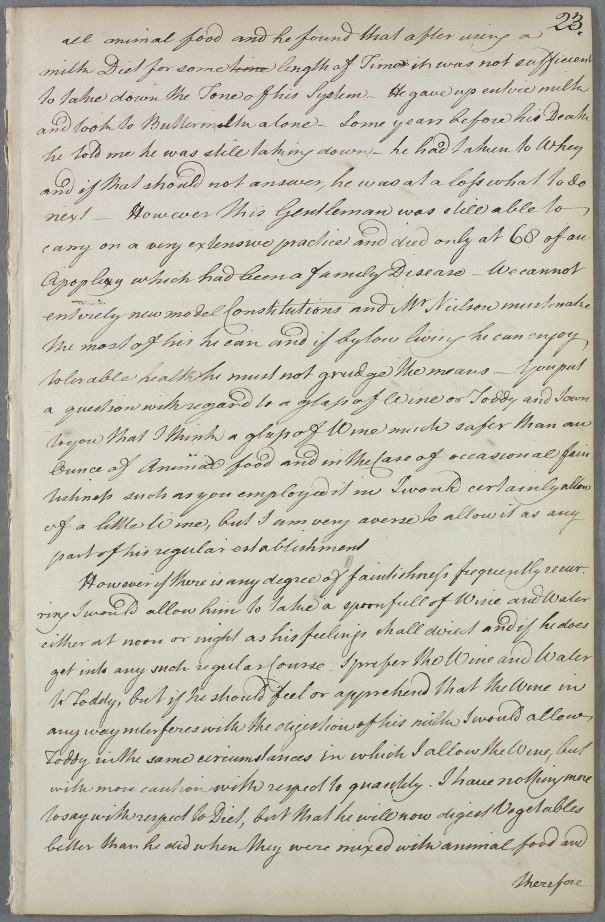 23.
all animal food and he found that after using a
milk Diet for some time length of Time it was not sufficient
to take down the Tone of his System – He gave up entire milk
and took to Buttermilk alone – Some years before his Death
he told me he was still taking down – he had taken to Whey
and if that should not answer, he was at a loss what to do
next – However this Gentleman was still able to
carry on a very extensive practice and died only at 68 of an
Apoplexy which had been a family Disease – We cannot
entirely new model Constitutions and Mr Neilson must make
the most of his he can and if by low living he can enjoy
tolerable health he must not grudge the means – You put
a question with regard to a glass of Wine or Toddy and I own
to you that I think a glass of Wine much safer than an
Ounce of Animal food and in the Case of occasional fain
tishness such as you employed it in I would certainly allow
of a little Wine, but I am very averse to allow it as any
part of his regular establishment
However if there is any degree of faintishness frequently recur-
ring I would allow him to take a spoonfull of Wine and Water
either at noon or night as his feelings shall direct and if he does
get into any such regular Course. I prefer the Wine and Water
to Toddy, but if he should feel or apprehend that the Wine in
any way interferes with the digestion of his milk I would allow
Toddy in the same circumstances in which I allow the Wine, but
with more caution with respect to quantity. I have nothing more
to say with respect to Diet, but that he will now digest Vegetables
better than he did when they were mixed with animal food and
therefore